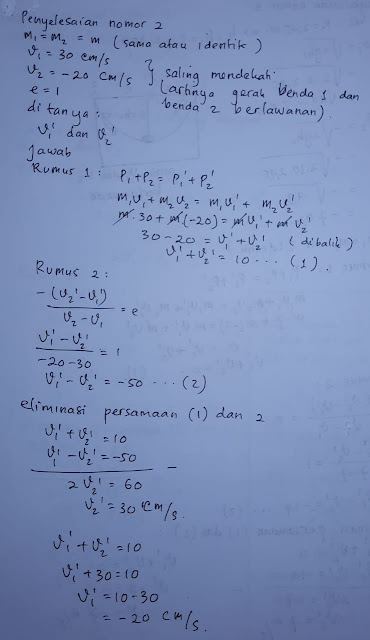 Penyelesaian nomor 2
m₁ = m₂ = m (sama atau identik)
v₁ = 30 cm/s
v₂ = -20 cm/s } saling mendekati
(artinya gerak benda 1 dan
benda 2 berlawanan).
e = 1
ditanya:
v₁' dan v₂'
Jawab
Rumus 1 : P₁ + P₂ = P₁' + P₂'
m₁v₁ + m₂v₂ = m₁v₁' + m₂v₂'
m·30 + m(-20) = mv₁' + mv₂'
30 - 20 = v₁' + v₂' (dibalik)
v₁' + v₂' = 10 ... (1).
Rumus 2:
-(v₂' - v₁') / v₂ - v₁ = e
v₁' - v₂' / -20 - 30 = 1
v₁' - v₂' = -50 ... (2)
eliminasi persamaan (1) dan 2
v₁' + v₂' = 10
v₁' - v₂' = -50 -
2 v₂' = 60
v₂' = 30 cm/s.
v₁' + v₂' = 10
v₁' + 30 = 10
v₁' = 10 - 30
= -20 cm/s.